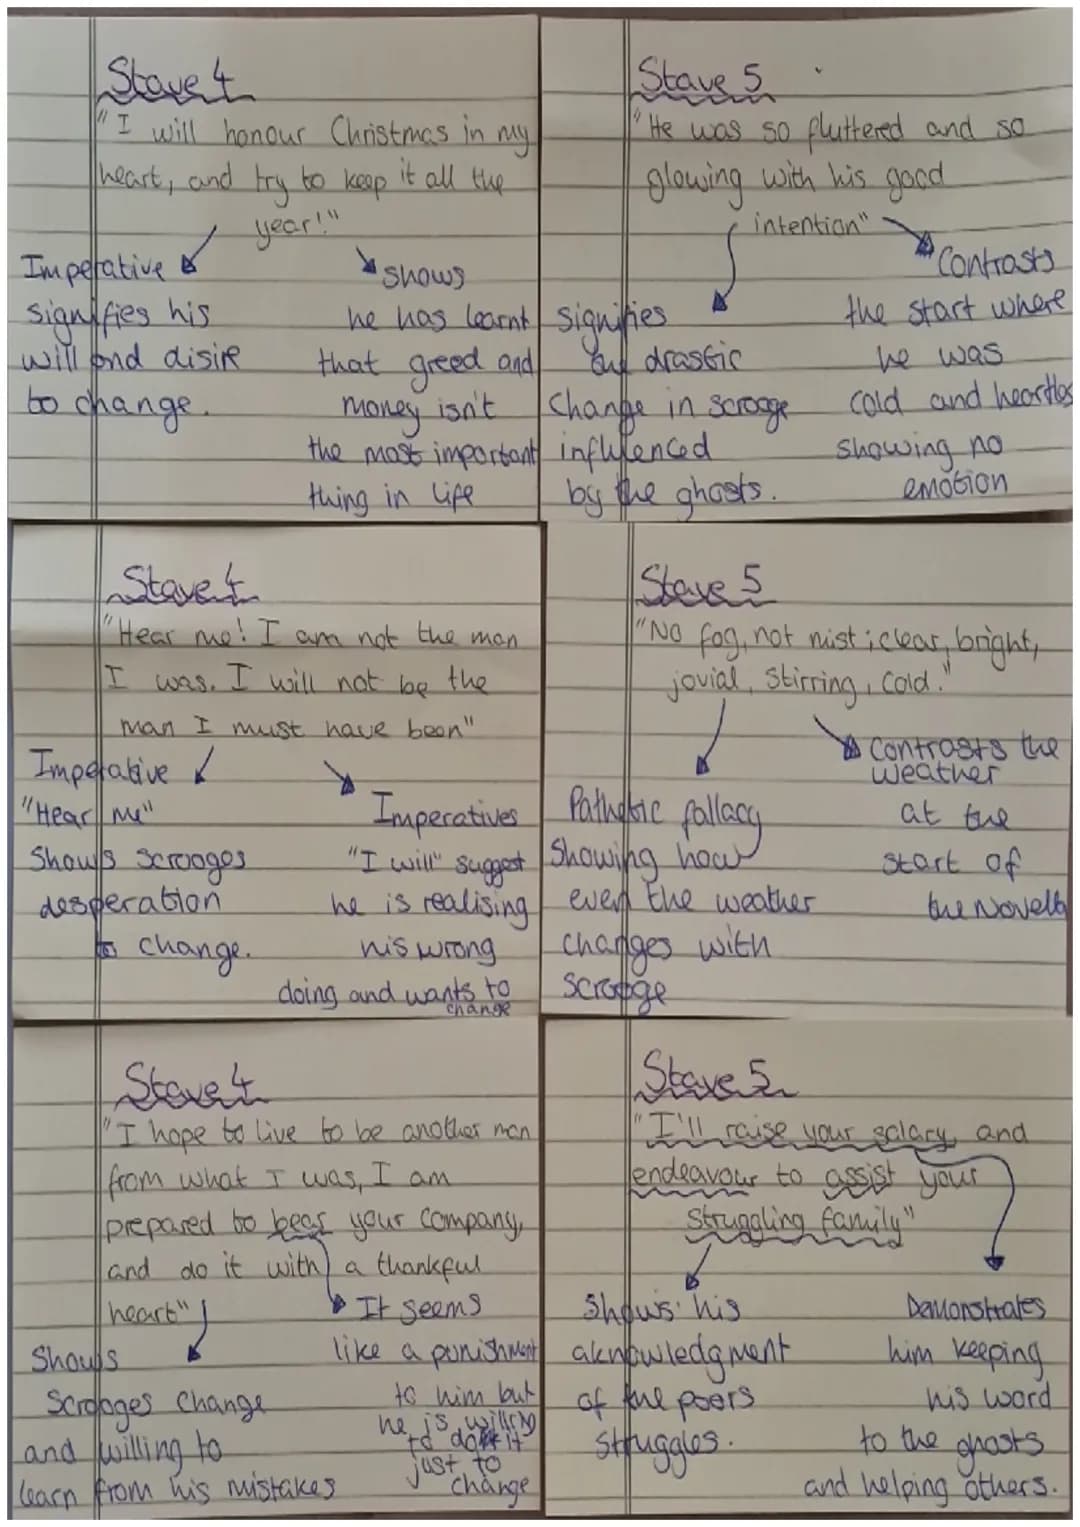 Stave 4
"I will honour Christmas in my
heart, and try to keep it all the
year!"
Imperative
signifies his
will and disire
to change.
shows
he has learnt
that greed and
money isn't
the most important
thing in life
Stave 5
"He was so fluttered and so
glowing with his good
intention"
signifies
the drastic
change in scrooge
influenced
by the ghosts.
Contrasts
the start where
he was
cold and heartles
showing no
emotion
Stave 4
"Hear me! I am not the man
I was. I will not be the
man I must have been"
Imperative
"Hear me"
Shows scrooges
desperation
to change.
Imperatives
"I will" suggest
he is realising
his wrong
doing and wants to
change
Stave 5
"No fog, not mist; clear, bright,
jovial, stirring, cold."
Pathetic fallacy
showing how
even the weather
changes with
scrooge
Contrasts the
weather
at the
start of
the Novella
Stave 4
"I hope to live to be another man
from what I was, I am
prepared to bear your company,
and do it with a thankful
heart"
Shows
Scrooges change
and willing to
learn from his mistakes
It seems
like a punishment
to him but
he is willing
to do it
just to
change
Stave 5
"I'll raise your salary, and
endeavour to assist your
struggling family"
Shows his
aknowledgment
of the poors
struggles.
Demonstrates
him keeping
his word
to the ghosts
and helping others.